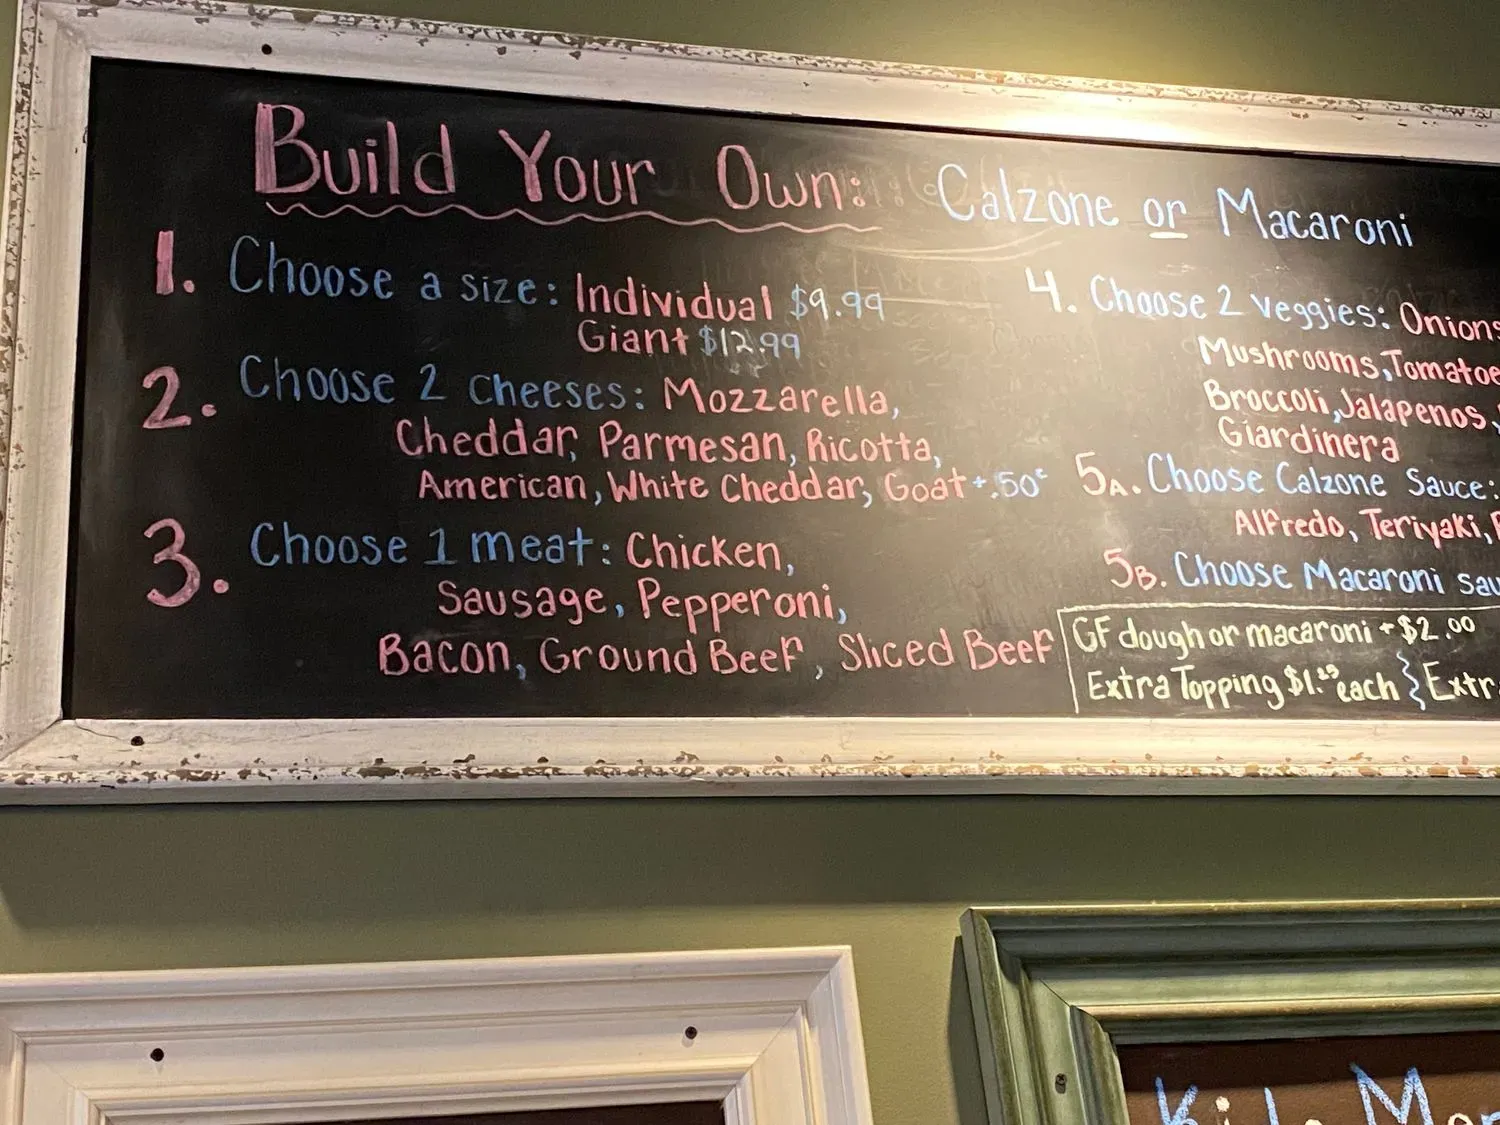 Build Your Own: Calzone or Macaroni
1. Choose a size: Individual $9.99
Giant $12.99
2. Choose 2 cheeses: Mozzarella,
Cheddar, Parmesan, Ricotta,
American, White Cheddar, Goat +.50¢
3. Choose 1 meat: Chicken,
Sausage, Pepperoni,
Bacon, Ground Beef, Sliced Beef
4. Choose 2 veggies: Onions
Mushrooms, Tomatoe
Broccoli, Jalapenos,
Giardinera
5A. Choose Calzone Sauce:
Alfredo, Teriyaki,
5B. Choose Macaroni sau
GF dough or macaroni + $2.00
Extra Topping $1.29 each } Extr